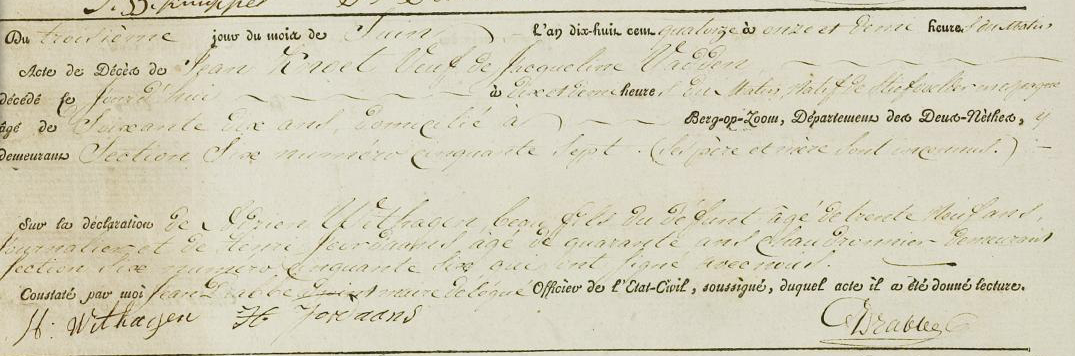 Du troisième jour du mois de Juin l'an dix-huit cent quatorze à onze et demie heure du Matin
Acte de Décès de Jean Knoet Veuf de Jacqueline Vadden
décédé ce jourd'hui à dix et demie heure du Matin, Natif de
âgé de Soixante dix ans, domicilié à Berg-op-Zoom, Département des Deux-Nèthes, y
demeurant Section Six numéro cinquante sept. (les père et mère sont inconnus.)
Sur la déclaration de Withagen, beau fils du défunt âgé de trente neuf ans,
journalier et de Henri Jordaans, âgé de quarante ans Chaudronnier demeurant
section six numéro cinquante six qui ont signé avec nous.
Constaté par moi Jean maire délégué Officier de l'Etat-Civil, soussigné, duquel acte il a été donné lecture.
A: Withagen H Jordaans